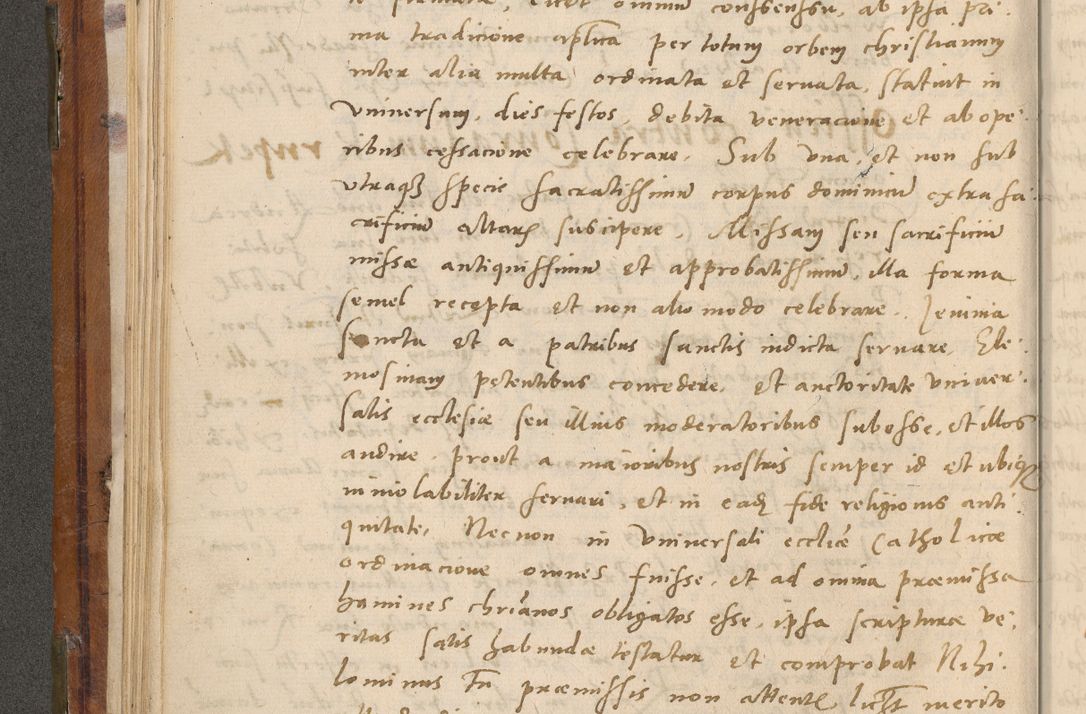 firmata, licet omnium consensu, ab ipsa pri:
ma tradicione aplica per totum orbem christianum
inter alia multa ordinata et servata, statuit in
vniversum, dies festos, debita veneracione et ab ope:
ribus cessacione celebrare. Sub vna, et non sub
vtraq3 specie sacratissimum corpus dominicum extra sa:
crificium altaris suscipere. Missam seu sacrificium
missæ antiquissimum et approbatissimum, illa forma
semel recepta et non alio modo celebrare. Ieiunia
sancta et a patribus sanctis indicta servare, Ele:
mosinam petentibus concedere, et auctoritate univer:
salis ecclesiæ seu illius moderatoribus subesse, et illos
audire, prout a maioribus nostris semper id et ubiq3
inviolabiliter servari, et in ead fide religionis anti:
quitate, Necnon in vniversali eccliæ Catholicæ
ordinacione omnes fuisse, et ad omnia præmissa
homines chrianos obligatos esse, ipsa scripturæ ve:
ritas satis habunde testatur et comprobat Nihi:
lominus Tn præmissis non attentis licet merito